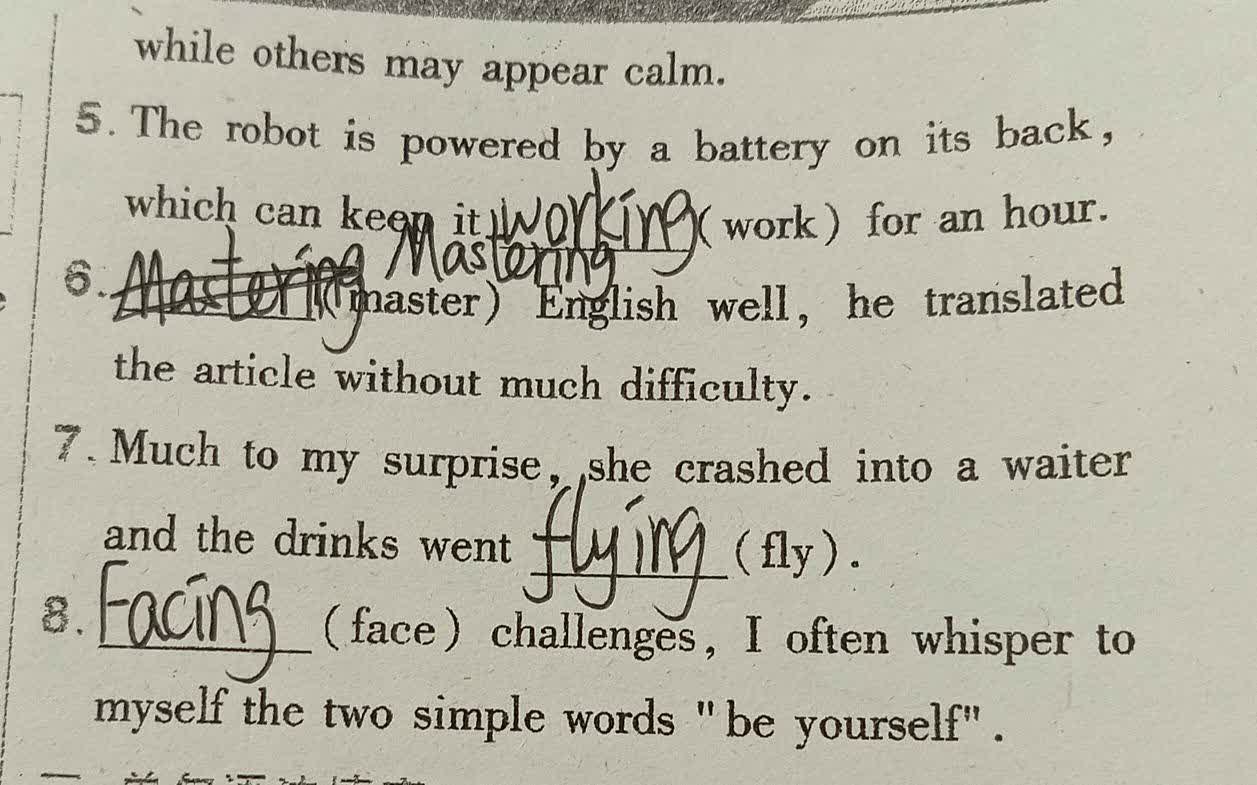 while others may appear calm.
5. The robot is powered by a battery on its back,
which can keep it working (work) for an hour.
6. Mastering Mastering (master) English well, he translated
the article without much difficulty.
7. Much to my surprise, she crashed into a waiter
and the drinks went flying (fly).
8. Facing (face) challenges, I often whisper to
myself the two simple words "be yourself".